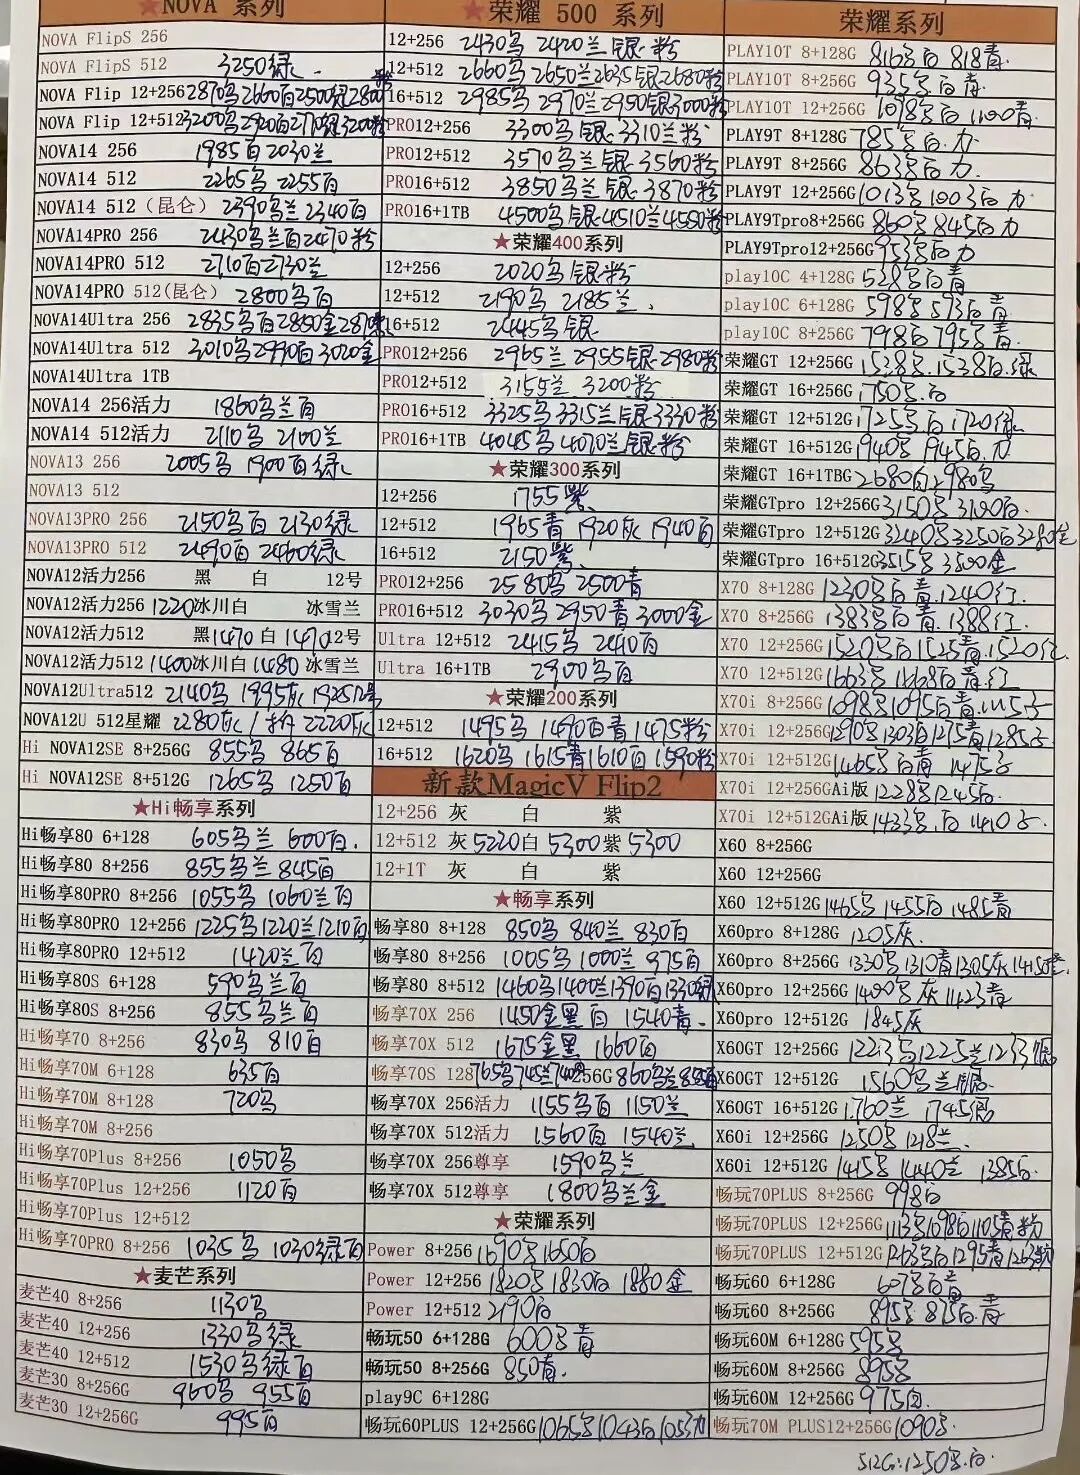 ★NOVA 系列
NOVA FlipS 256
NOVA FlipS 512 3250绿
NOVA Flip 12+256 2870乌2600百2500绿2800粉
NOVA Flip 12+512 3200乌2920百2770绿3200粉
NOVA14 256 1985百2030兰
NOVA14 512 2265乌 2255百
NOVA14 512（昆仑） 2390乌兰2340百
NOVA14PRO 256 2430乌兰百2470粉
NOVA14PRO 512 2710百2730兰
NOVA14PRO 512(昆仑) 2800乌百
NOVA14Ultra 256 2835乌百2860金
NOVA14Ultra 512 3010乌2990百3020金
NOVA14Ultra 1TB
NOVA14 256活力 1860乌兰百
NOVA14 512活力 2110乌 2100兰
NOVA13 256 2005乌 1900百绿
NOVA13 512
NOVA13PRO 256 2150乌百2130绿
NOVA13PRO 512 2490百2460绿
NOVA12活力256 黑 白 12号
NOVA12活力256 1220冰川白 冰雪兰
NOVA12活力512 黑1470白1470 12号
NOVA12活力512 1400冰川白1480 冰雪兰
NOVA12Ultra512 2140乌 1995灰 1925 12号
NOVA12U 512星耀 2280灰 2220灰
Hi NOVA12SE 8+256G 855乌 865百
Hi NOVA12SE 8+512G 1265乌 1250百
★Hi畅享系列
Hi畅享80 6+128 605乌兰 600百.
Hi畅享80 8+256 855乌兰 845百
Hi畅享80PRO 8+256 1055乌 1060兰百
Hi畅享80PRO 12+256 1225乌1220兰1210百
Hi畅享80PRO 12+512 1420兰百
Hi畅享80S 6+128 590乌兰百
Hi畅享80S 8+256 855乌兰百
Hi畅享70 8+256 830乌 810百
Hi畅享70M 6+128 635百
Hi畅享70M 8+128 720乌
Hi畅享70M 8+256
Hi畅享70Plus 8+256 1050乌
Hi畅享70Plus 12+256 1120百
Hi畅享70Plus 12+512
Hi畅享70PRO 8+256 1035乌 1030绿百
★麦芒系列
麦芒40 8+256 1130乌
麦芒40 12+256 1330乌绿
麦芒40 12+512 1530乌绿百
麦芒30 8+256G 960乌 955百
麦芒30 12+256G 995百
★荣耀 500 系列
12+256 2430乌 2420兰银粉
12+512 2660乌2650兰2635银2680粉
16+512 2985乌2970兰2950银3000粉
PRO12+256 3300乌银3310兰粉
PRO12+512 3570乌兰银3560粉
PRO16+512 3850乌兰银3870粉
PRO16+1TB 4500乌银4510兰4580粉
★荣耀400系列
12+256 2020乌银粉
12+512 2190乌 2185兰
16+512 2445乌银
PRO12+256 2965兰 2955银2980粉
PRO12+512 3155兰 3200粉
PRO16+512 3325乌3315兰银3330粉
PRO16+1TB 4045乌4070兰银粉
★荣耀300系列
12+256 1755紫
12+512 1965青 1920灰 1940百
16+512 2150紫
PRO12+256 2580乌2500青
PRO16+512 3030乌2950青3000金
Ultra 12+512 2415乌 2410百
Ultra 16+1TB 2900乌百
★荣耀200系列
12+512 1495乌 1490百青1475粉
16+512 1620乌1615青1610百1590粉
新款MagicV Flip2
12+256 灰 白 紫
12+512 灰5220白5300紫5300
12+1T 灰 白 紫
★畅享系列
畅享80 8+128 850乌 840兰 830百
畅享80 8+256 1005乌 1000兰 975百
畅享80 8+512 1460乌1400兰1390百1330绿
畅享70X 256 1450金黑百 1540青
畅享70X 512 1675金黑 1660百
畅享70S 128 765乌745兰740百256G 860乌兰855百
畅享70X 256活力 1155乌百1150兰
畅享70X 512活力 1560百 1540兰
畅享70X 256尊享 1590乌兰
畅享70X 512尊享 1800乌兰金
★荣耀系列
Power 8+256 1690名1650百
Power 12+256 1820名1830百 1880金
Power 12+512 2190百
畅玩50 6+128G 600名青
畅玩50 8+256G 850青.
play9C 6+128G
畅玩60PLUS 12+256G 1065名1043白1053力
荣耀系列
PLAY10T 8+128G 816名白 818青.
PLAY10T 8+256G 935名白青
PLAY10T 12+256G 1098名白1100青
PLAY9T 8+128G 785名白力
PLAY9T 8+256G 863名白力
PLAY9T 12+256G 1013名1003白力
PLAY9Tpro8+256G 860名845白力
PLAY9Tpro12+256G 953名白力
play10C 4+128G 528名白青
play10C 6+128G 598名593白青
play10C 8+256G 798白795名青
荣耀GT 12+256G 1528名.1538白.绿
荣耀GT 16+256G 1750名白
荣耀GT 12+512G 1725名白1720绿
荣耀GT 16+512G 1940名1945白力
荣耀GT 16+1TBG 2680白2980乌
荣耀GTpro 12+256G 3150名3100白
荣耀GTpro 12+512G 3240名3250白3280金
荣耀GTpro 16+512G 3515名3500金
X70 8+128G 1230名白青.1240红
X70 8+256G 1383名白青.1388红
X70 12+256G 1520名白1525青.1520红
X70 12+512G 1663名1668白青.红
X70i 8+256G 1098名1095白青
X70i 12+256G 1290名1303白1275青1285
X70i 12+512G 1465名白青 1475
X70i 12+256GAi版 1228名1245白
X70i 12+512GAi版 1433名.白 1410
X60 8+256G
X60 12+256G
X60 12+512G 1465名 1455白 1485青
X60pro 8+128G 1205灰.
X60pro 8+256G 1330名1310青1305灰1415橙
X60pro 12+256G 1400名灰1423青
X60pro 12+512G 1845灰
X60GT 12+256G 1223名1225兰1233银
X60GT 12+512G 1560名兰银
X60GT 16+512G 1760兰 1745银
X60i 12+256G 1250名1218兰
X60i 12+512G 1415名1440兰 1385白
畅玩70PLUS 8+256G 998白
畅玩70PLUS 12+256G 1113名1098白1105青粉
畅玩70PLUS 12+512G 1263名白1295青1263粉
畅玩60 6+128G 607名白青
畅玩60 8+256G 895名875白青
畅玩60M 6+128G 595名
畅玩60M 8+256G 895名
畅玩60M 12+256G 975白
畅玩70M PLUS12+256G 1090名
512G:1250名.白.